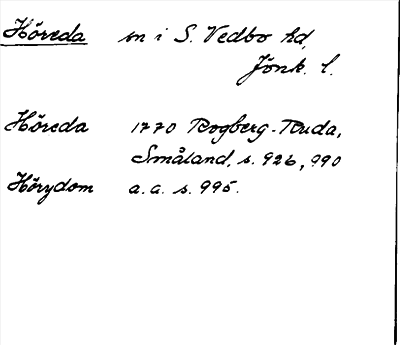 Höreda sn i S. Vedbo hd,
Jönk. l.
Höreda 1770 Rogberg-Ruda,
Småland, s. 926, 990
Hörydom a. a. s. 995.